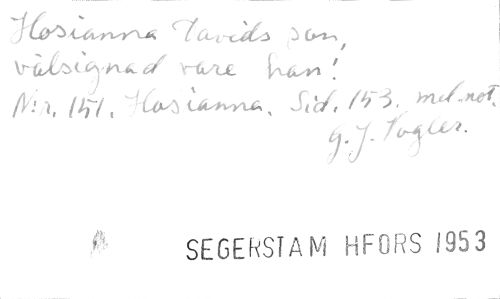 Hosianna Davids son,
välsignad vare han!
N:r. 151. Hosianna. Sid. 153. mel.-not.
G. J. Vogler.
SEGERSTAM HFORS 1953